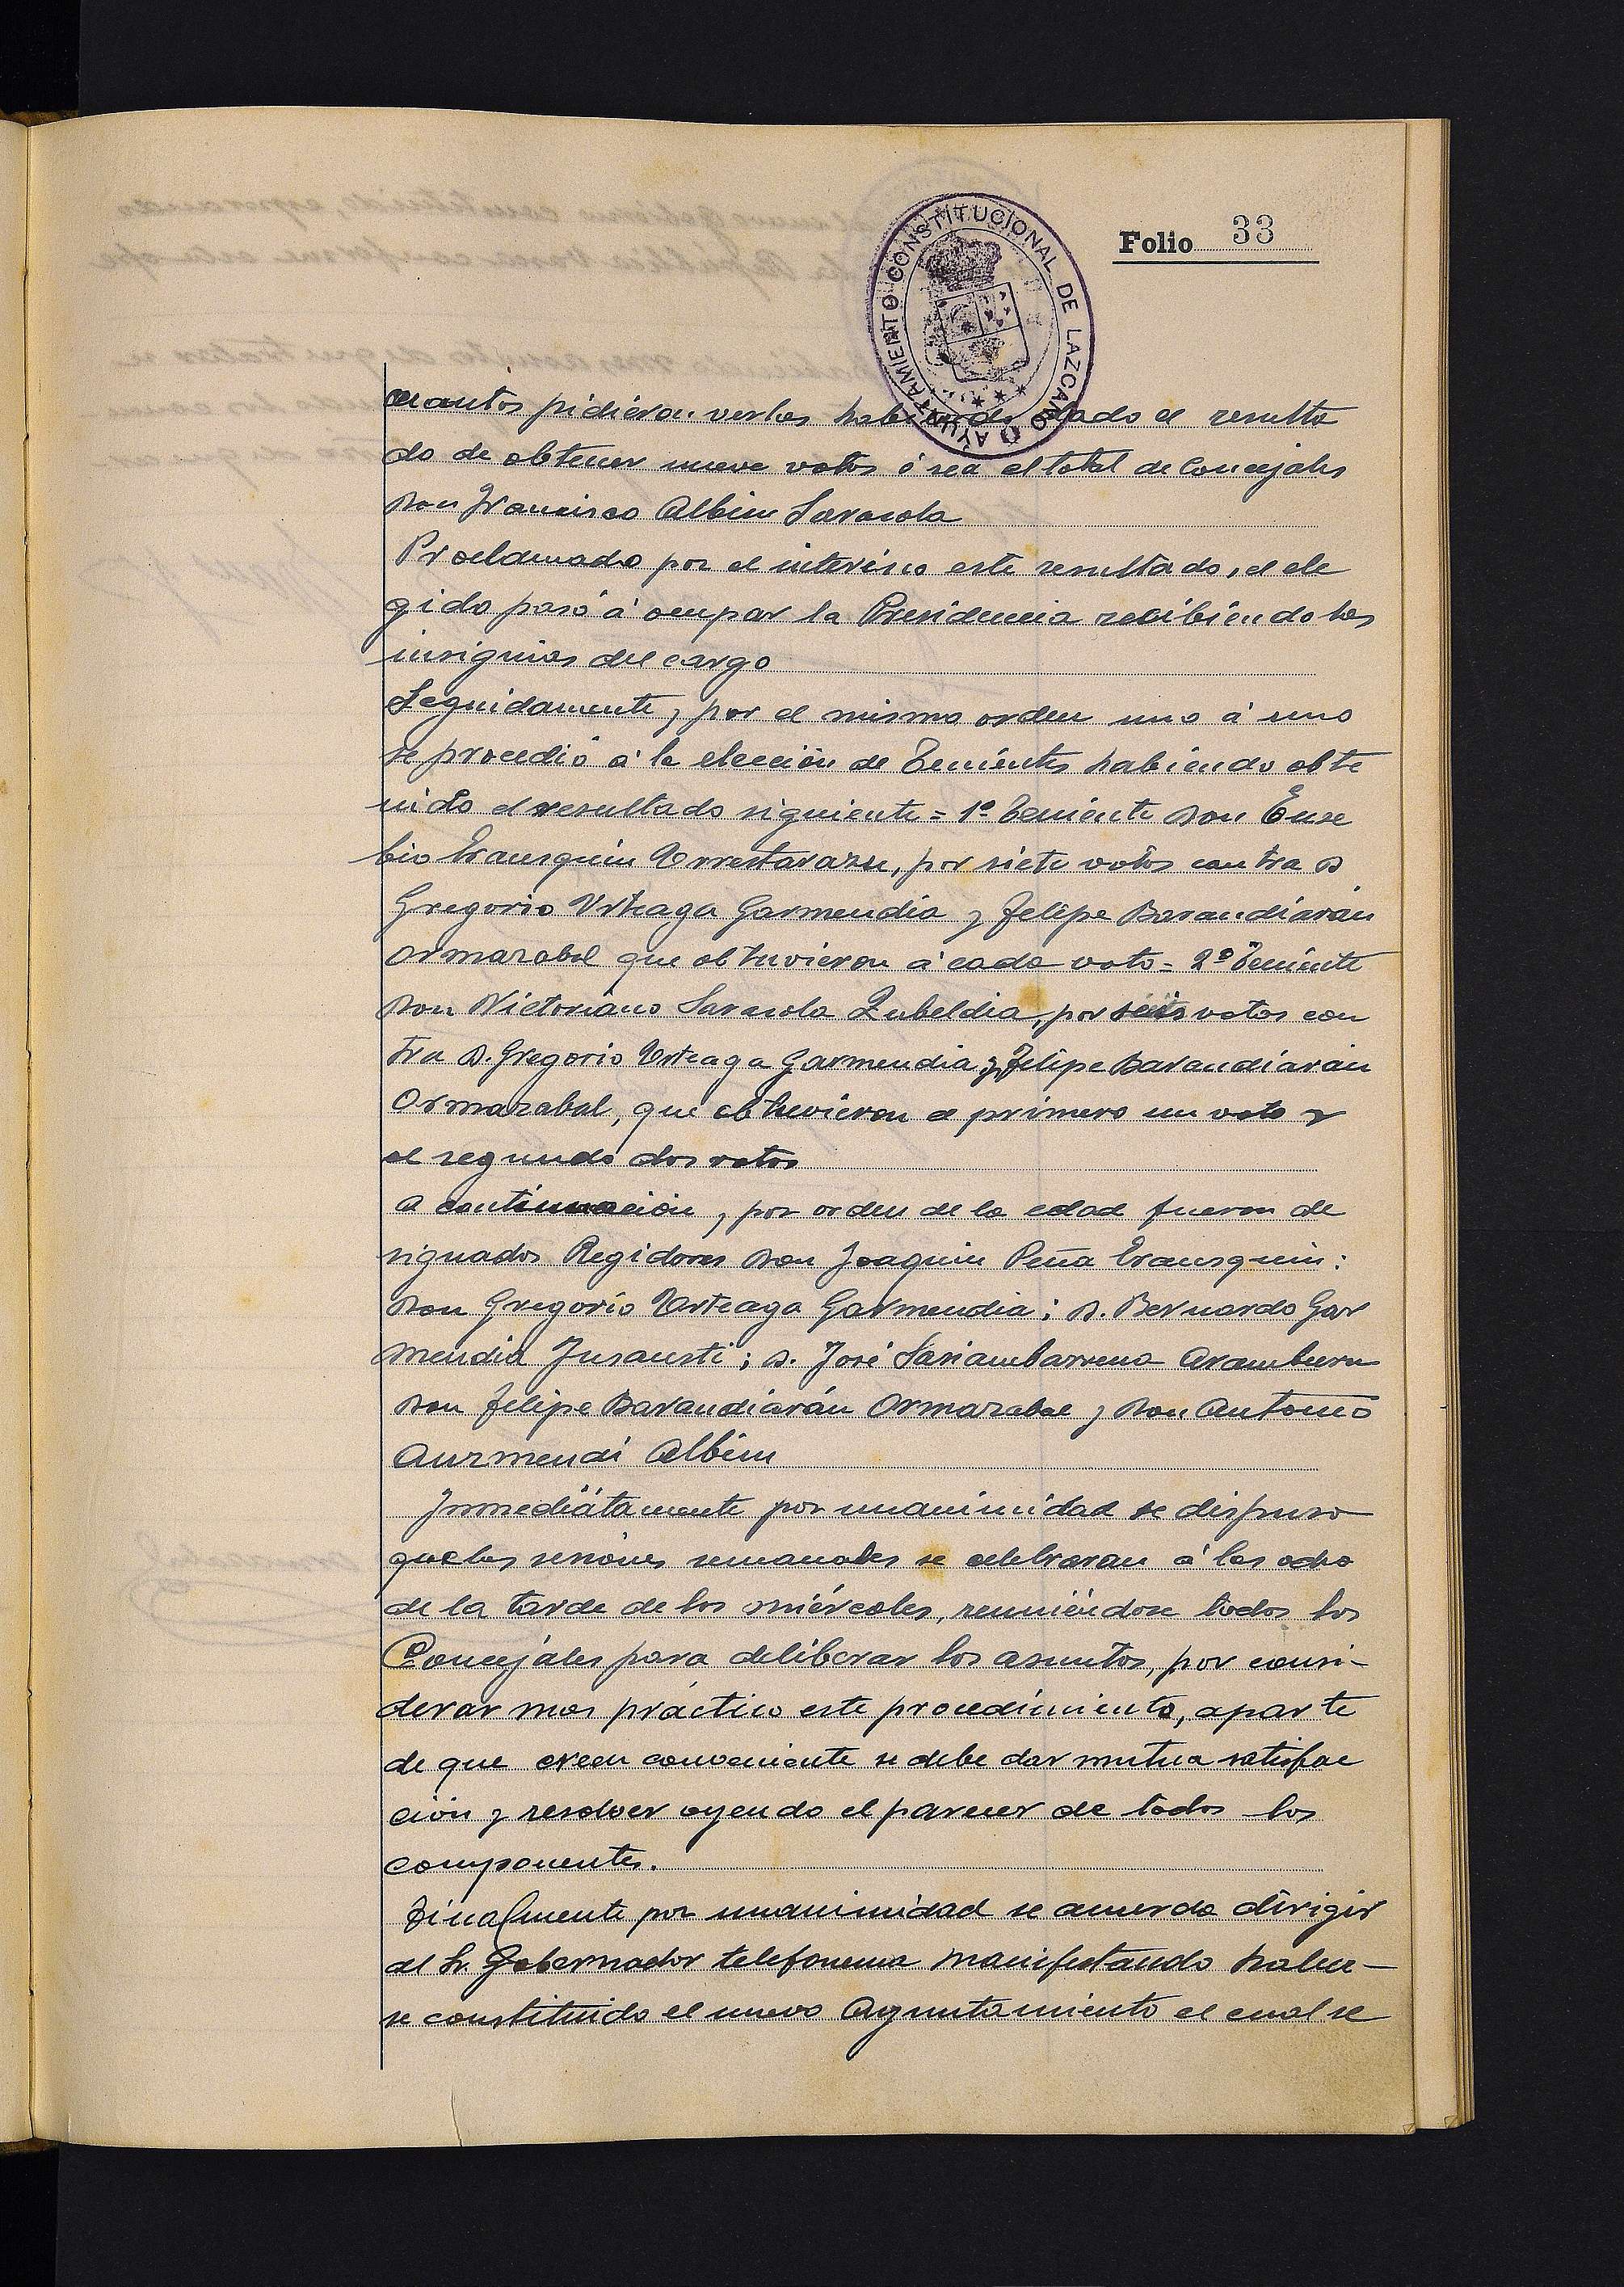 Folio 33
AYUNTAMIENTO CONSTITUCIONAL DE LAZCANO
cuantos pidiéron verlas habiendo dado el resulta
do de obtener nueve votos ó sea el total de Concejales
Don Francisco Albisu Sarasola
Proclamado por el interino este resultado, el ele
gido pasó á ocupar la Presidencia recibiéndo las
insignias del cargo
Seguidamente y por el mismo orden uno á uno
se procedió á la elección de Teniéntes habiéndo obte
nido el resultado siguiente = 1º teniénte Don Euse
bio Irausquin Urrestarazu, por siete votos contra D
Gregorio Urteaga Garmendia y Felipe Barandiarán
Ormazabal que obtuvieron á cada voto = 2º Teniénte
Don Victoriano Sarasola Zubeldia, por seis votos con
tra D. Gregorio Urteaga Garmendia y Felipe Barandiarán
Ormazabal, que obtuvieron e primero un voto y
el segundo dos votos
A continuación y por orden de la edad fueron de
signados Regidores Don Joaquin Peña Irausquin:
Don Gregorio Urteaga Garmendia; D. Bernardo Gar
mendia Insausti; D. José Sasiambarrena Aramburu
Don Felipe Barandiarán Ormazabal y Don Antonio
Aurmendi Albisu
Inmediátamente por unanimidad se dispuso
que las sesiónes semanales se celebraran á las ocho
de la tarde de los miércoles, reuniéndose todos los
Concejáles para deliberar los asuntos, por consi-
derar mas práctico este procedimiento, aparte
de que creen conveniente se debe dar mutua satisfac
ción y resolver oyendo el parecer de todos los
componentes.
Finalmente por unanimidad se acuerda dirigir
al Sr. Gobernador telefonema manifestando haber-
se constituido el nuevo Ayuntamiento el cual se